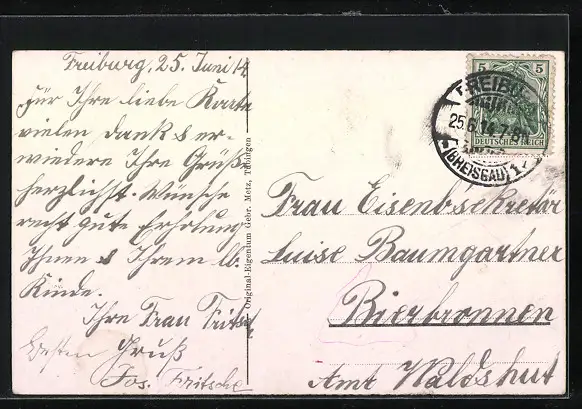 Freiburg, 25. Juni 14
Für Ihre liebe Karte
vielen Dank & er-
wiedere Ihre Grüße
herzlichst. Wünsche
recht gute Erholung
Ihnen & Ihrem lb.
Kinde.
Ihre Frau Fritsch
besten Gruß
Jos. Fritsche
Original-Eigentum Gebr. Metz, Tübingen
5 5
DEUTSCHES REICH
FREIBURG
25.6.14. 7-8N
(BREISGAU) 1
Frau Eisenb.sekretär
Luise Baumgartner
Bierbronnen
Amt Waldshut